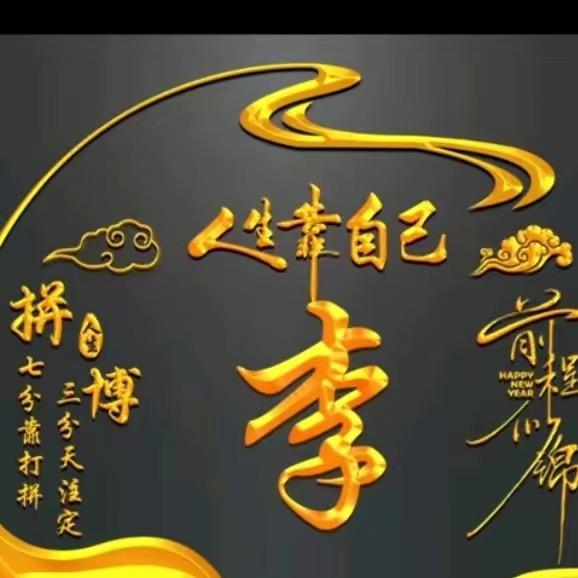 人生靠自己
李
拼
人生
博
三分天注定
七分靠打拼
前程似锦
HAPPY
NEW
YEAR